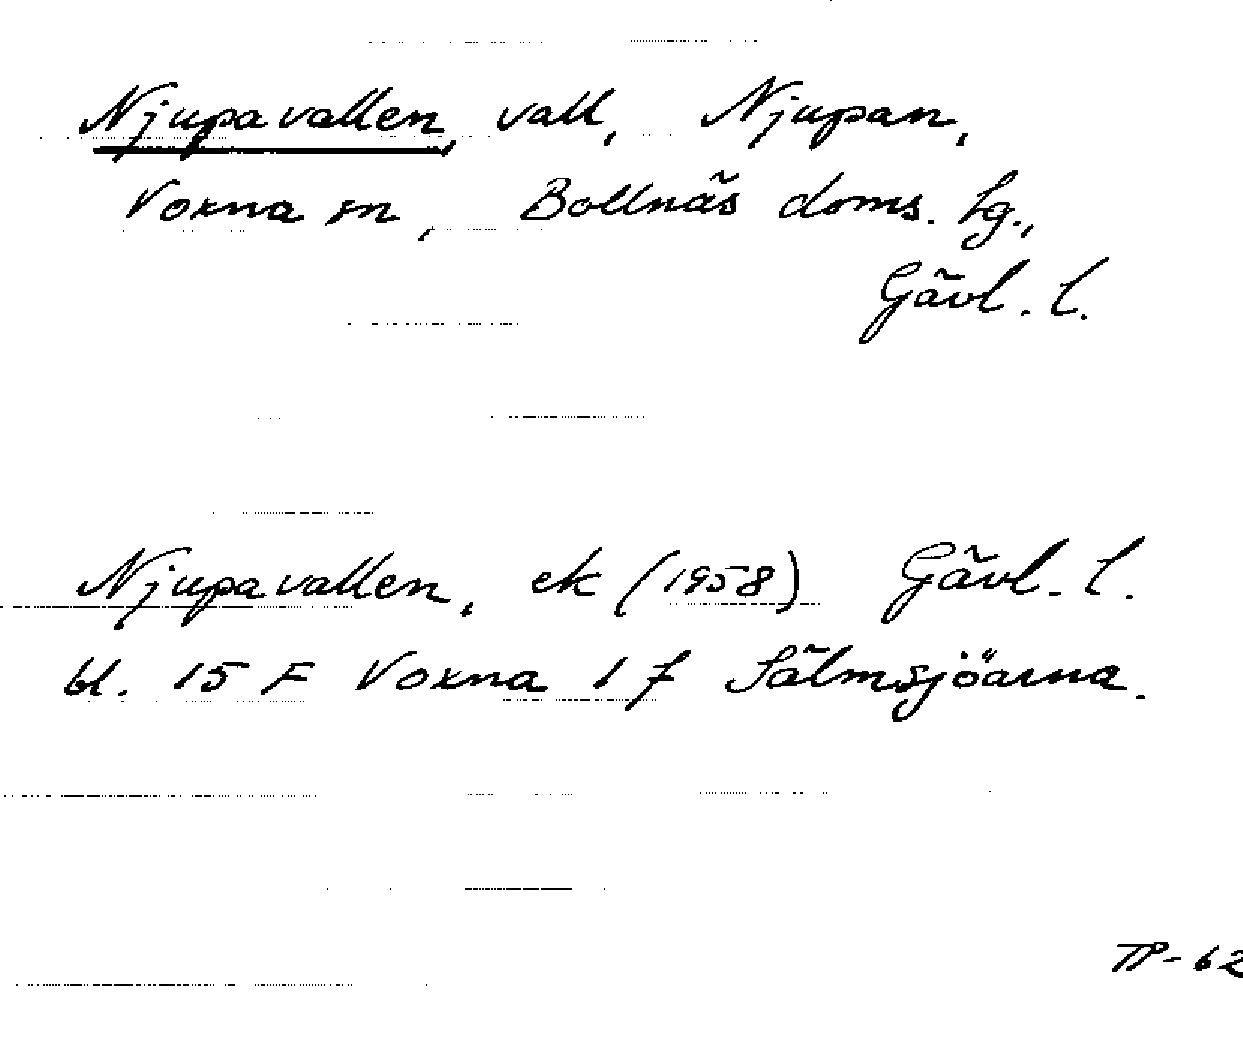 Njupavallen, vall, Njupan,
Voxna sn, Bollnäs doms. hg.,
Gävl. l.
Njupavallen, ek (1958) Gävl. l.
bl. 15 F Voxna 1 f Sälmsjöarna.
TP-62